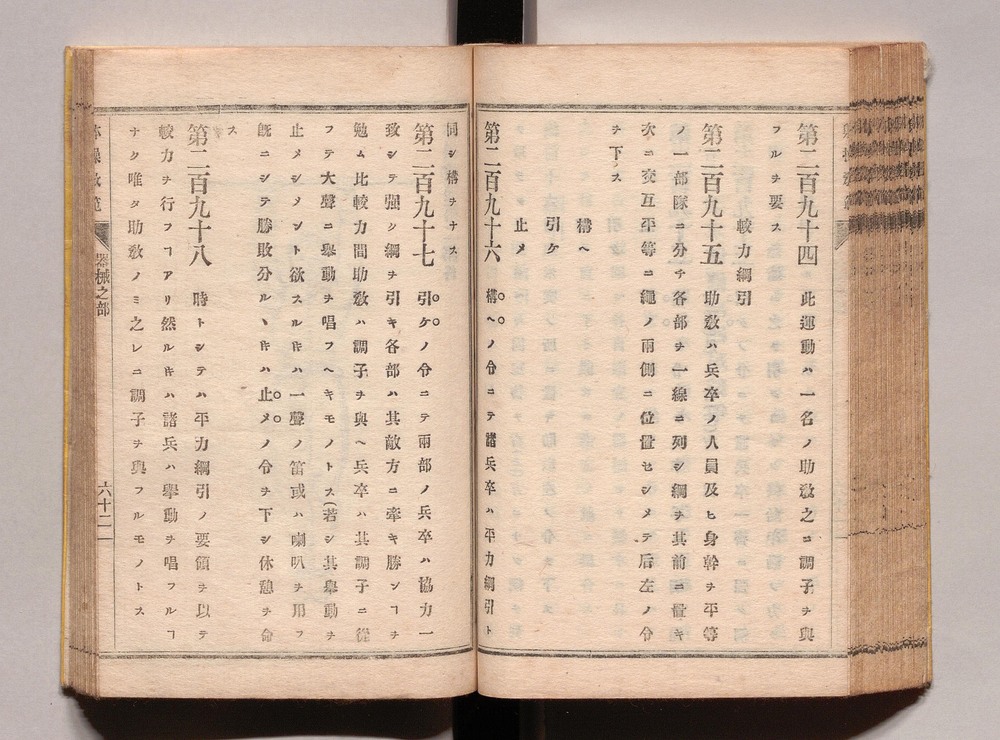 第二百九十四　此運動ハ一名ノ助敎之ニ調子ヲ與
フルヲ要ス
較力綱引
第二百九十五　助敎ハ兵卒ノ人員及ヒ身幹ヲ平等
ノ一部隊ニ分チ各部ヲ一線ニ列シ綱ヲ其前ニ置キ
次ニ交互平等ニ繩ノ兩側ニ位置セシメテ后左ノ令
ヲ下ス
構ヘ
引ケ
止メ
第二百九十六　構ヘノ令ニテ諸兵卒ハ平力綱引ト
同シ構ヲナス
第二百九十七　引ケノ令ニテ兩部ノ兵卒ハ協力一
致シテ强シ綱ヲ引キ各部ハ其敵方ニ牽キ勝ンヿヲ
勉ム比較力間助敎ハ調子ヲ與ヘ兵卒ハ其調子ニ從
フテ大聲ニ擧動ヲ唱フヘキモノトス(若シ其擧動ヲ
止メシメント欲スル𪜈ハ一聲ノ笛或ハ喇叭ヲ用フ
旣ニシテ勝敗分ルヽ𪜈ハ止メノ令ヲ下シ休憩ヲ命
ス
第二百九十八　時トシテハ平力綱引ノ要領ヲ以テ
較力ヲ行フヿアリ然ル𪜈ハ諸兵ハ擧動ヲ唱フルヿ
ナク唯タ助敎ノミ之レニ調子ヲ與フルモノトス
器械之部
六十二